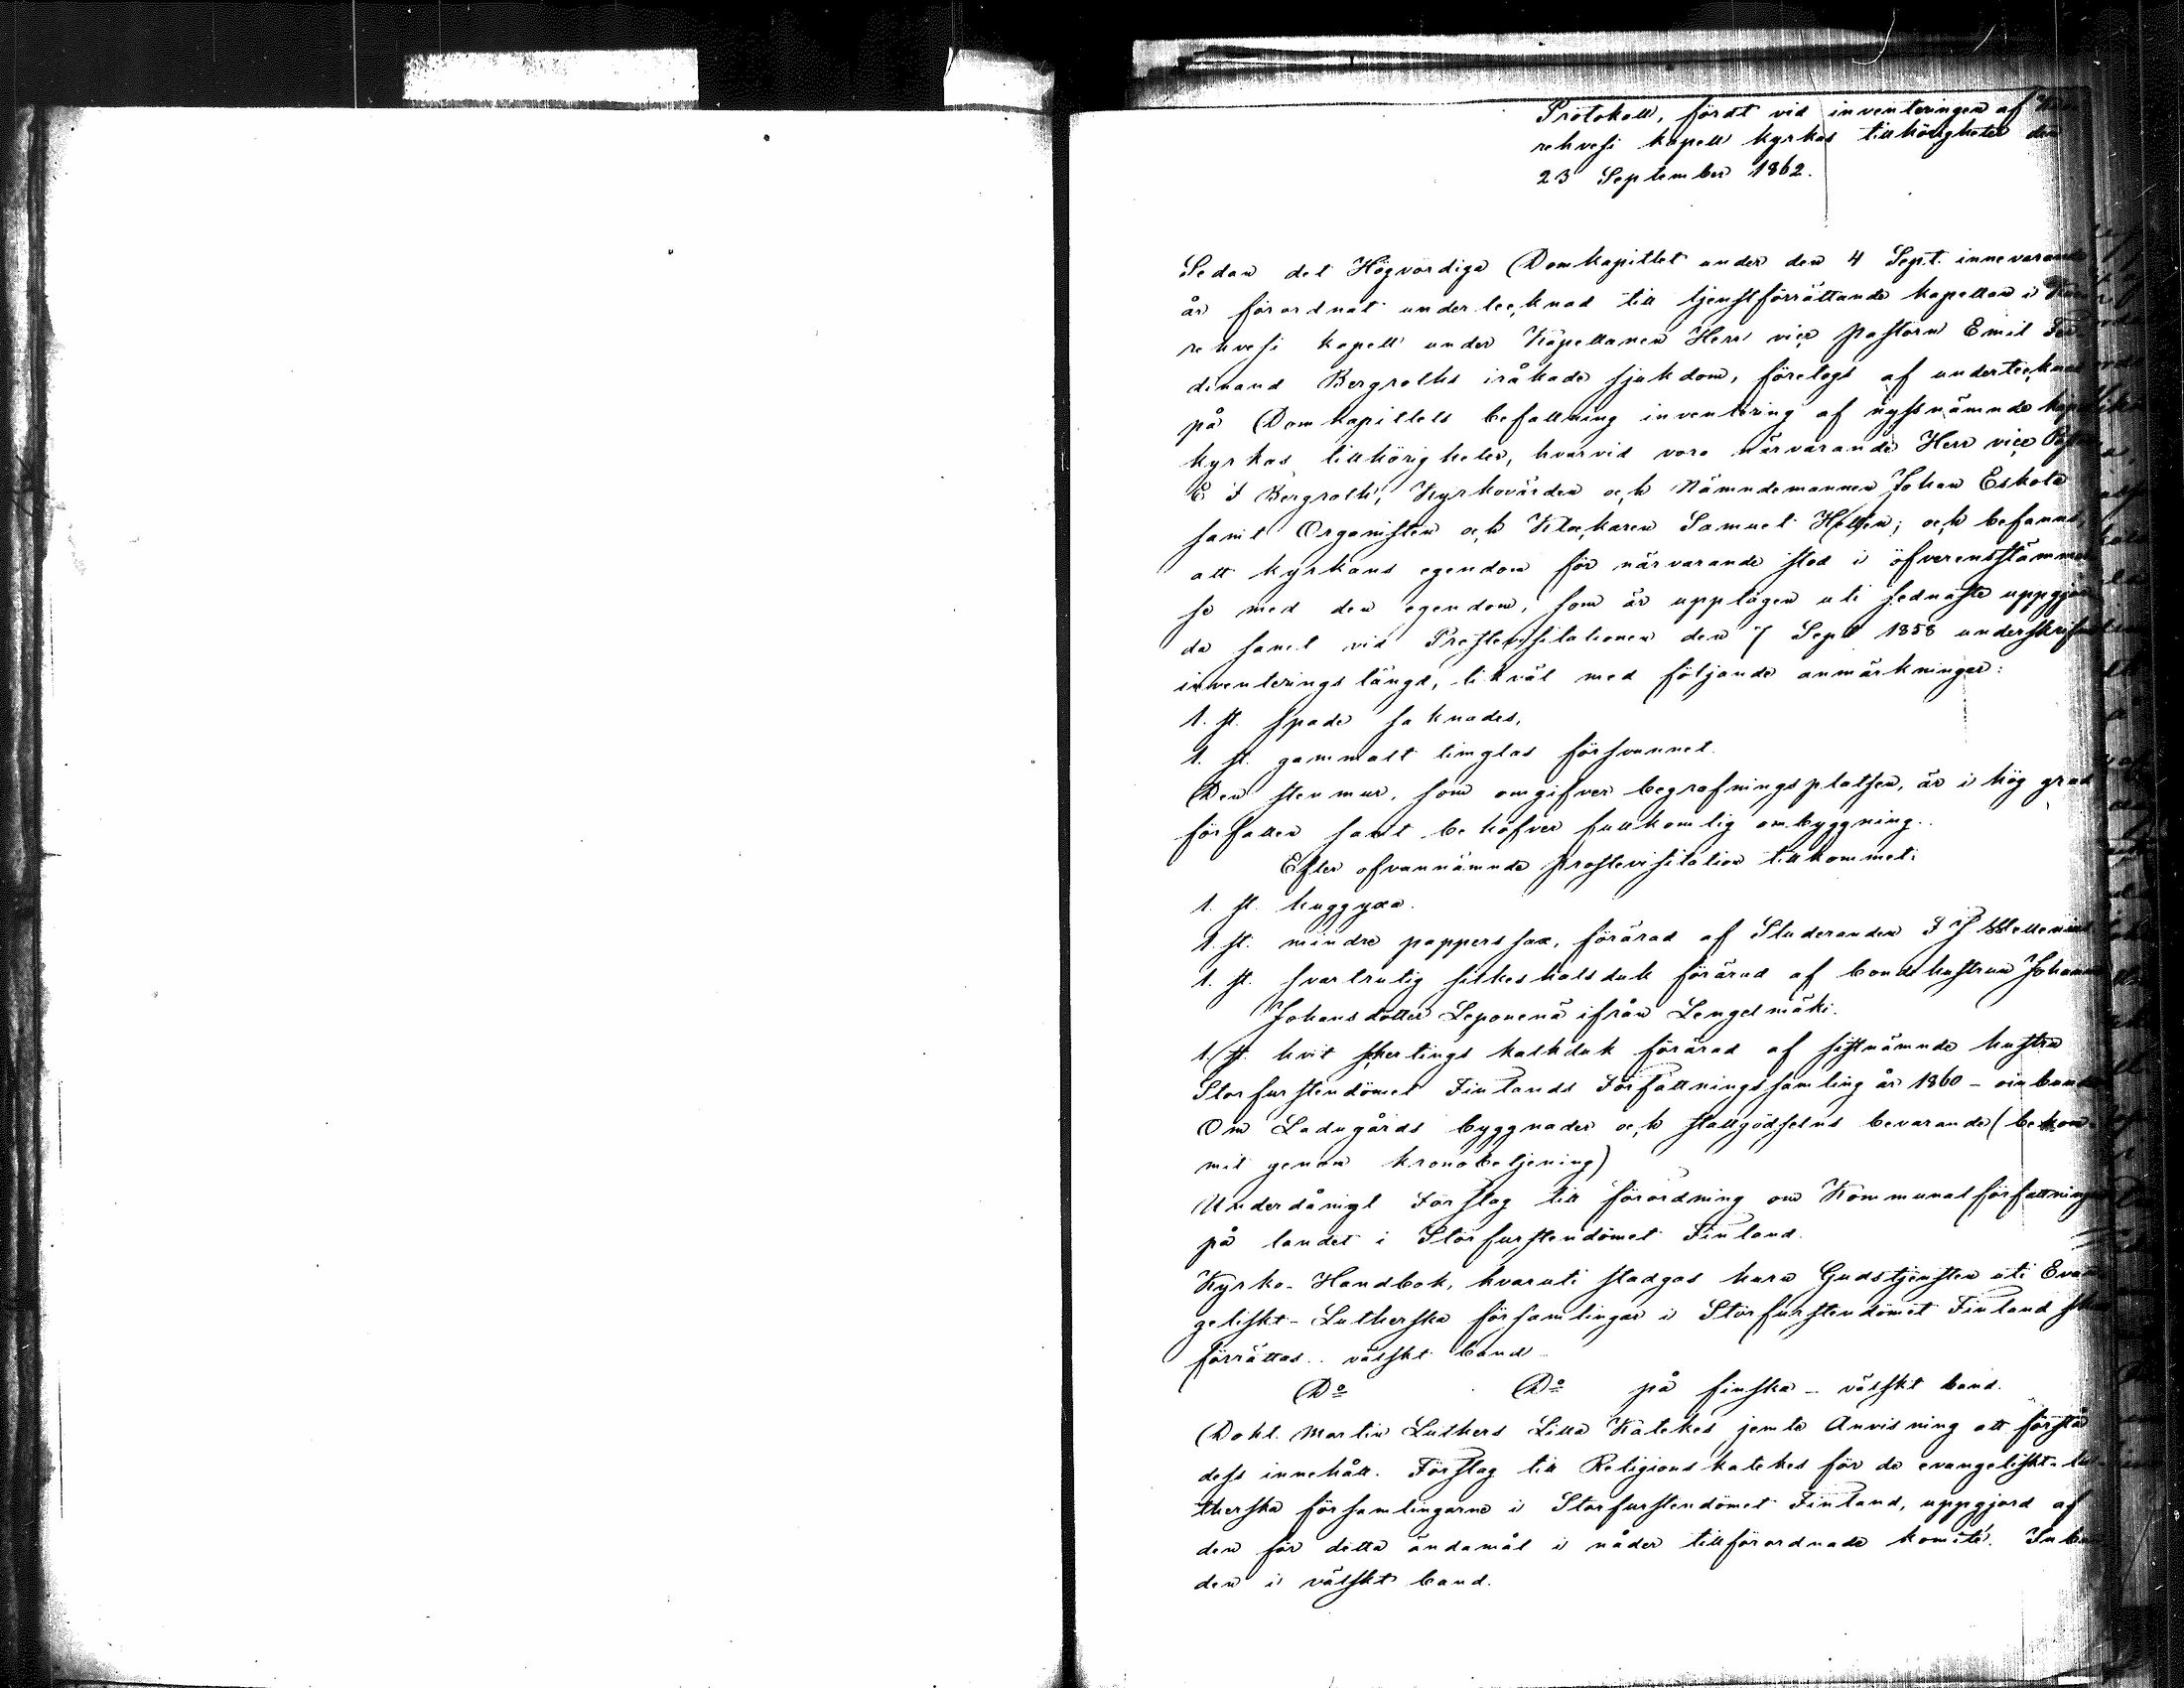 Protokoll, fördt vid inventeringen af Kuo
rehvesi kapell kyrkas tillhörigheter den
23 September 1862.
Sedan det Högvördiga Domkapitlet under den 4 Sept. innevarande
år förordnat undertecknad till tjenstförrättande kapellan i Kuo
rehvesi kapell under Kapellanen Herr vice pastorn Emil Fer
dinand Bergroths iråkade sjukdom, företogs af undertecknad
på Domkapitlets befallning inventering af nyssnämnde kapell
kyrkas tillhörigheter, hvarvid voro närvarande Herr vice Pastorn
E F Bergroth, Kyrkovärden och Nämndemannen Johan Eskola
samt Organisten och Klockaren Samuel Hellsen; och befanns
att kyrkans egendom för närvarande stod i öfverensstämmel
se med den egendom, som är upptagen uti sednaste uppgjor
da samt vid Prostevisitationen den 7 Sept 1858 underskrifna
inventerings längd, likväl med följande anmärkningar:
1. st. spade saknades,
1. st. gammalt timglas försvunnet.
Den stenmur, som omgifver begrafningsplatsen, är i hög grad
förfallen samt behöfver fullkomlig ombyggning.
Efter ofvannämnde prostevisitation tillkommet:
1. st. huggyxa.
1. st. mindre papperssax, förärad af Studeranden F J Wellenius
1. st. svartrutig silkeshalsduk förärad af bondehustrun Johanna
Johansdotter Leponenä ifrån Lengelmäki.
1. st. hvit schertings kalkduk förärad af sistnämnde hustru
Storfurstendömet Finlands Författningssamling år 1860 - oinbunden
Om Ladugårds byggnader och stallgödselns bevarande (bekom
mit genom kronobetjening)
Underdånigt Förslag till förordning om Kommunalförfattningen
på landet i Storfurstendömet Finland.
Kyrko-Handbok, hvaruti stadgas huru Gudstjensten uti Evan
geliskt-Lutherska församlingar i Storfurstendömet Finland skall
förrättas.. välskt band
Do Do på finska - välskt band.
Dokt. Martin Luthers Lilla Katekes jemte Anvisning att förstå
dess innehåll. Förslag till Religionskatekes för de evangeliskt-lu-
therska församlingarne i Storfurstendömet Finland, uppgjord af
den för detta ändamål i nåder tillförordnade komité. Inbun
den i välskt band.